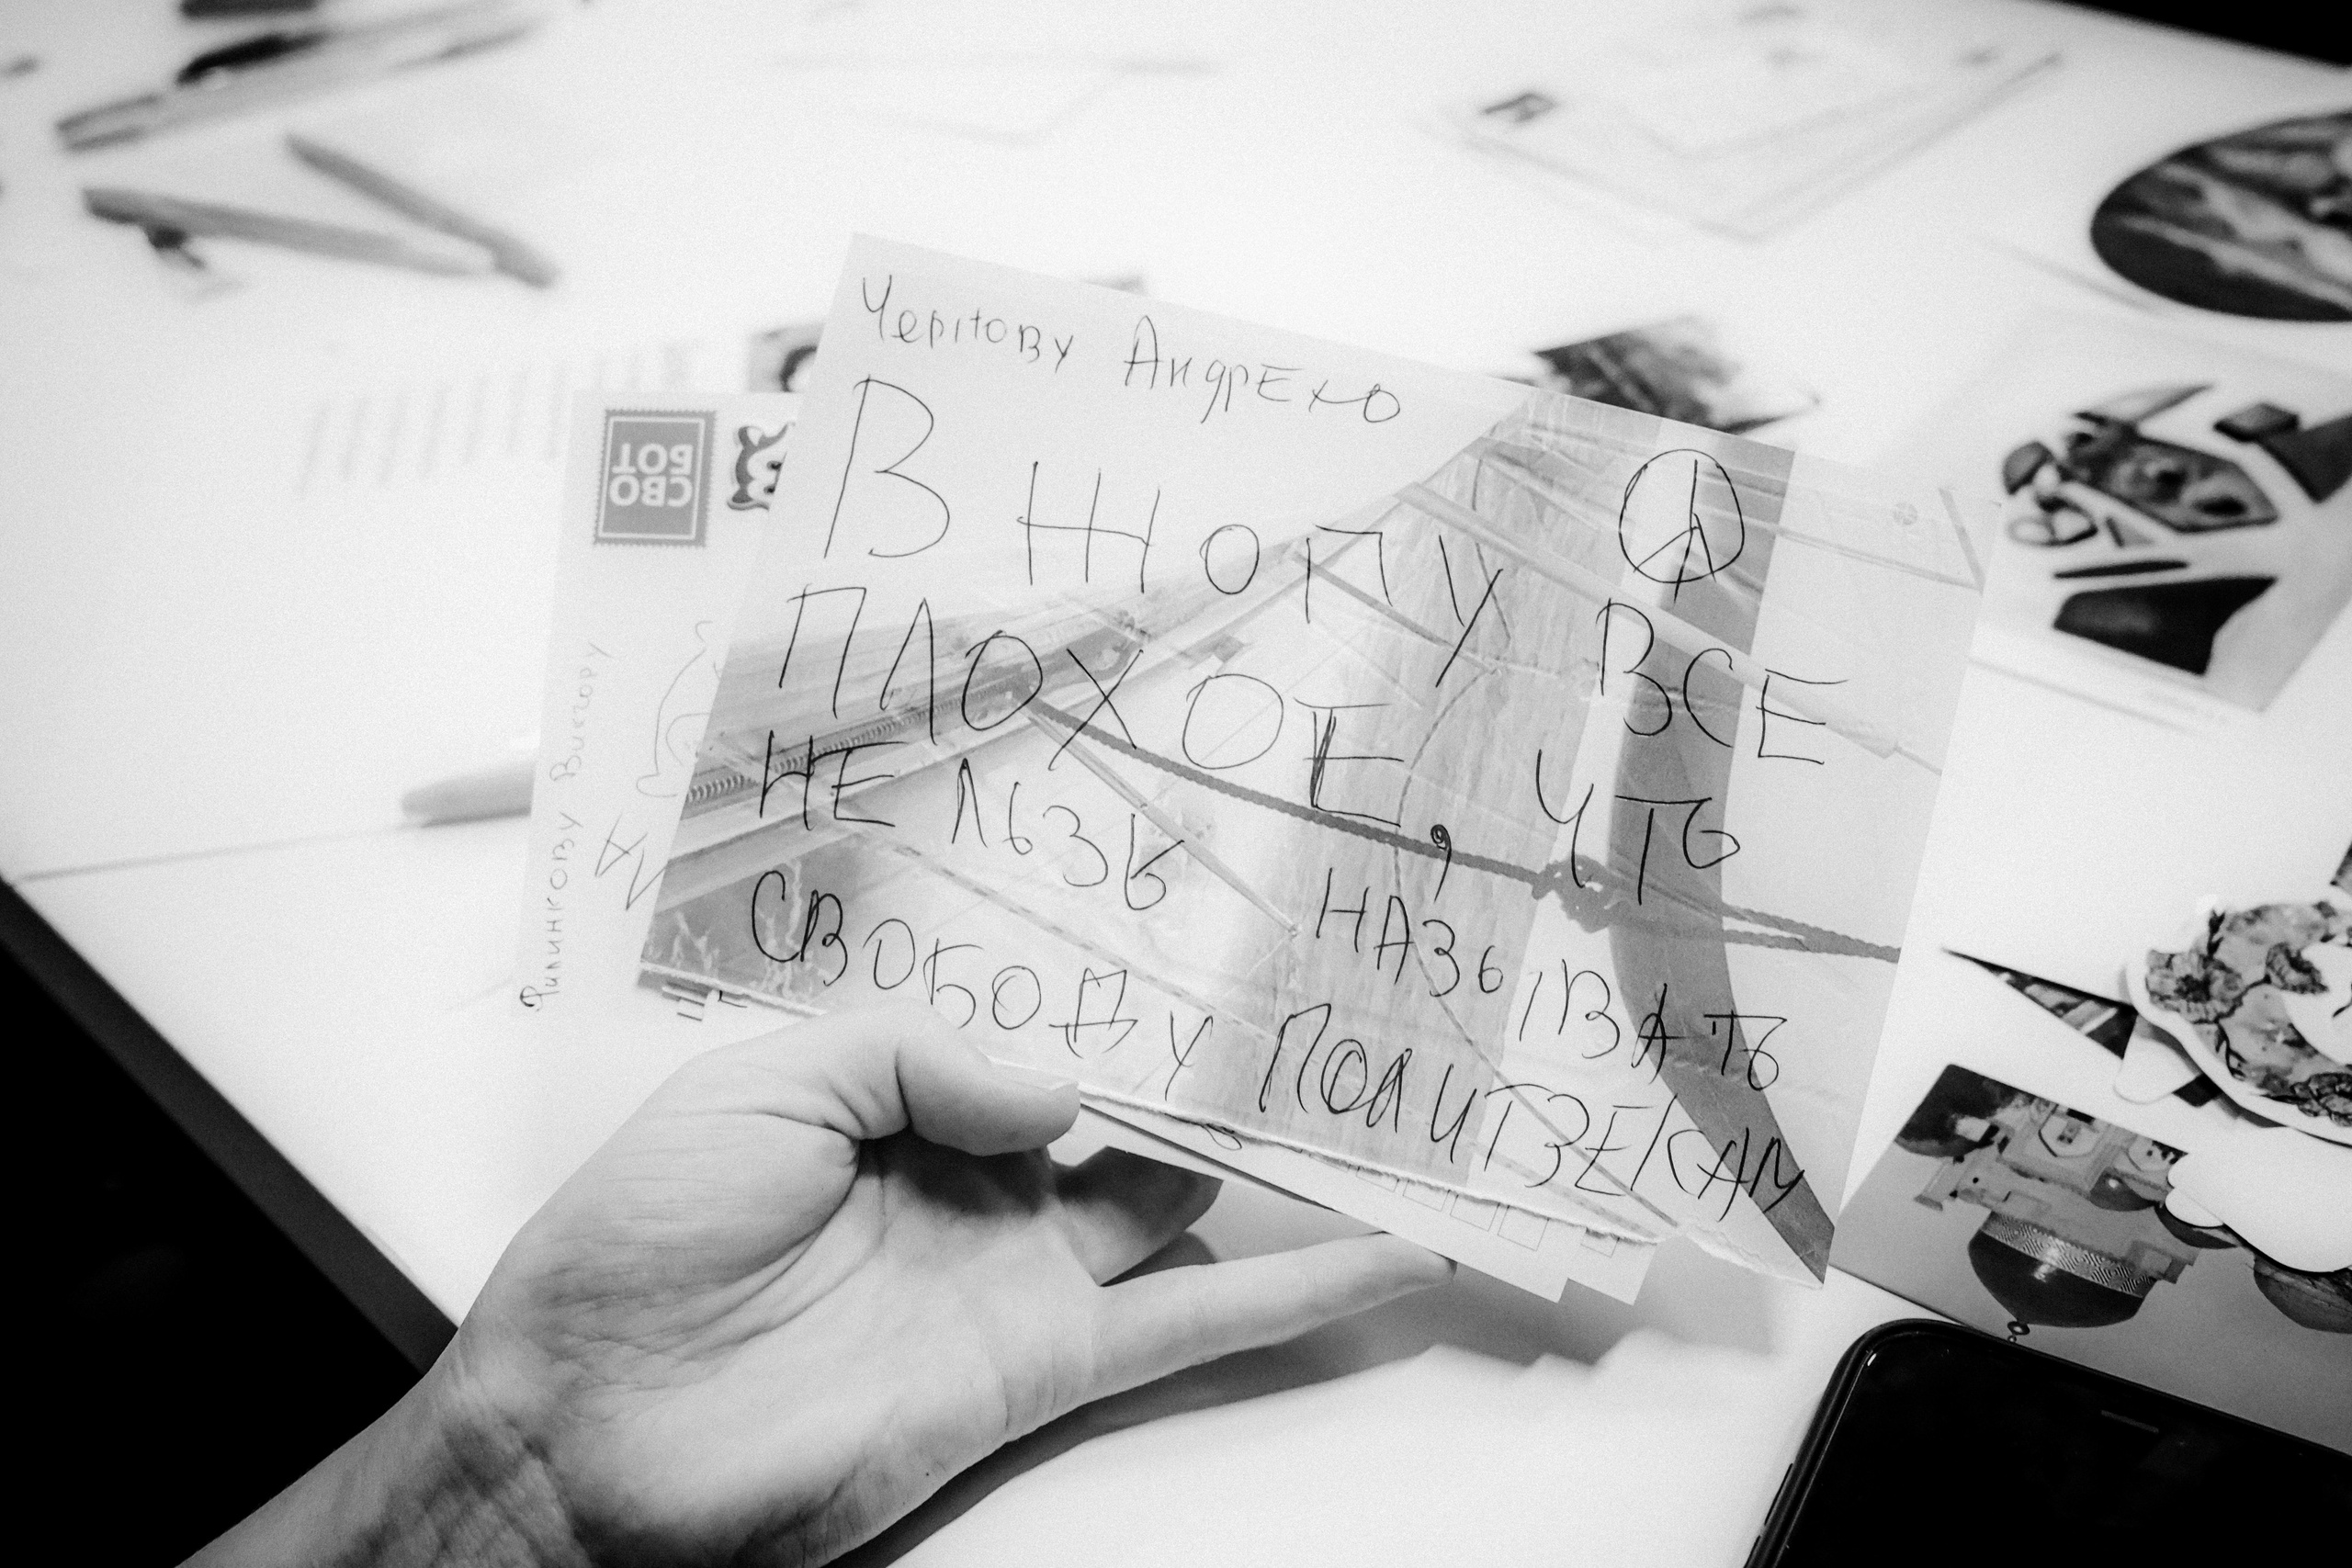 Чертову Андрею
В ЖОПУ ВСЕ
ПЛОХОЕ, ЧТО
НЕ ЛЬЗЬ НАЗЫВАТЬ
СВОБОДУ ПОЛИТЗЕКАМ
СВО
БОТ
Филинкову Виктору